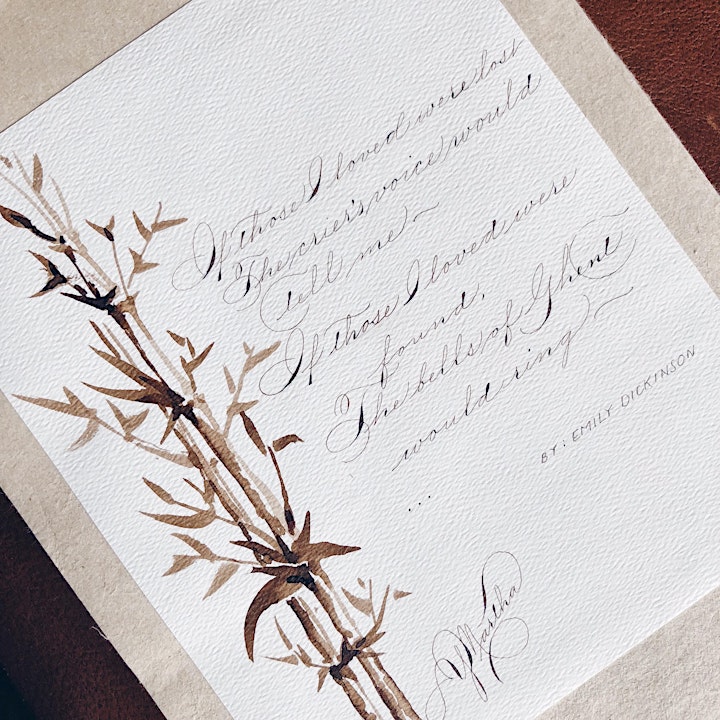 If those I loved were lost
The crier's voice would
tell me ~
If those I loved were
found,
The bells of Ghent
would ring ~
...
BY: EMILY DICKINSON
Martha